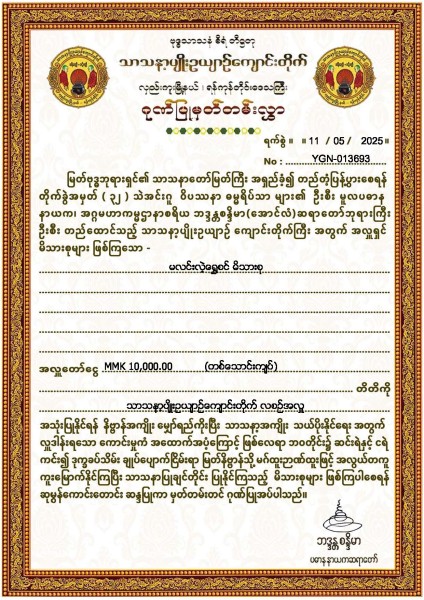 ဗုဒ္ဓသာသနံ စိရံ တိဋ္ဌတု
သာသနာ့ပျိုးဥယျာဉ်ကျောင်းတိုက်
လှည်းကူးမြို့နယ် ၊ ရန်ကုန်တိုင်းဒေသကြီး
ဂုဏ်ပြုမှတ်တမ်းလွှာ
ရက်စွဲ ။ ။ 11 / 05 / 2025။
No : YGN-013693
မြတ်ဗုဒ္ဓဘုရားရှင်၏ သာသနာတော်မြတ်ကြီး အရှည်ခံ့၍ တည်တံ့ပြန့်ပွားစေရန်
တိုက်ခွဲအမှတ် ( ၃၂ ) သဲအင်းဂူ ဝိပဿနာ ဓမ္မရိပ်သာ များ၏ ဦးစီး မူလပဓာန
နာယက၊ အဂ္ဂမဟာကမ္မဋ္ဌာနာစရိယ ဘဒ္ဒန္တစန္ဒိမာ(အောင်လံ)ဆရာတော်ဘုရားကြီး
ဦးစီး တည်ထောင်သည့် သာသနာ့ပျိုးဥယျာဉ် ကျောင်းတိုက်ကြီး အတွက် အလှူရှင်
မိသားစုများ ဖြစ်ကြသော -
မလင်းလှဲ့ရွှေစင် မိသားစု
အလှူတော်ငွေ MMK 10,000.00 (တစ်သောင်းကျပ်)
တိတိကို
သာသနာ့ပျိုးဥယျာဉ်ကျောင်းတိုက် လစဉ်အလှူ
အသုံးပြုနိုင်ရန် နိဗ္ဗာန်အကျိုး မျှော်ရည်ကိုးပြီး သာသနာ့အကျိုး သယ်ပိုးနိုင်ရေး အတွက်
လှူဒါန်းရသော ကောင်းမှုကံ အထောက်အပံ့ကြောင့် ဖြစ်လေရာ ဘဝတိုင်း၌ ဆင်းရဲနှင့် ငရဲ
ကင်း၍ ဒုက္ခခပ်သိမ်း ချုပ်ပျောက်ငြိမ်းရာ မြတ်နိဗ္ဗာန်သို့ မဂ်ထူးဉာဏ်ထူးဖြင့် အလွယ်တကူ
ကူးမြောက်နိုင်ကြပြီး သာသနာပြုချင်တိုင်း ပြုနိုင်ကြသည့် မိသားစုများ ဖြစ်ကြပါစေရန်
ဆုမွန်ကောင်းတောင်း ဆန္ဒပြုကာ မှတ်တမ်းတင် ဂုဏ်ပြုအပ်ပါသည်။
ဘဒ္ဒန္တစန္ဒိမာ
ပဓာနနာယကဆရာတော်